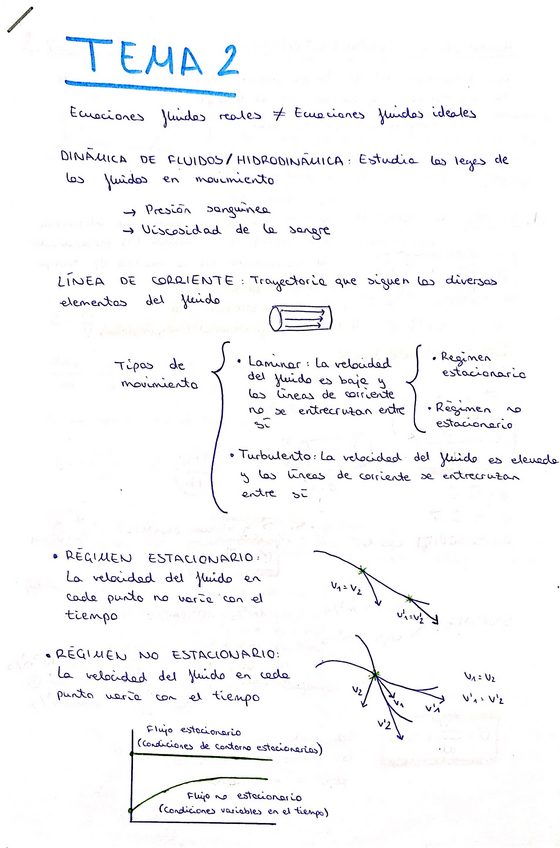 TEMA 2
Ecuaciones fluidos reales ≠ Ecuaciones fluidos ideales
DINÁMICA DE FLUIDOS/HIDRODINÁMICA: Estudia las leyes de
los fluidos en movimiento
→ Presión sanguínea
→ Viscosidad de la sangre
LÍNEA DE CORRIENTE: Trayectoria que siguen los diversos
elementos del fluido
Tipos de
movimiento
• Laminar: La velocidad
del fluido es baja y
las líneas de corriente
no se entrecruzan entre
sí
• Régimen
estacionario
• Régimen no
estacionario
• Turbulento: La velocidad del fluido es elevada
y las líneas de corriente se entrecruzan
entre sí
• RÉGIMEN ESTACIONARIO:
La velocidad del fluido en
cada punto no varía con el
tiempo
V₁ = V₂
V'₁ = V'₂
• RÉGIMEN NO ESTACIONARIO:
La velocidad del fluido en cada
punto varía con el tiempo
V₂
V₁
V'₁
V'₂
V₁ = V₂
V'₁ = V'₂
Flujo estacionario
(condiciones de contorno estacionarias)
Flujo no estacionario
(condiciones variables en el tiempo)